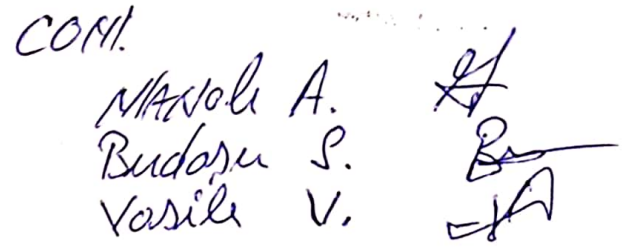 COM.
MANOLE A.
Budasu S.
Vasile V.